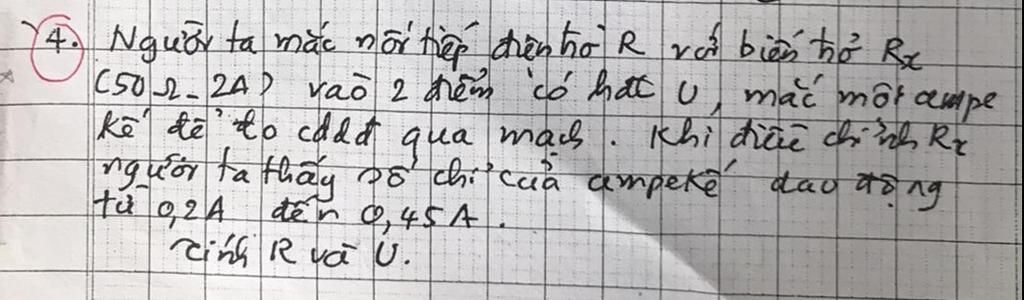 4. Người ta mắc nối tiếp điện trở R với biến trở Rx
(50Ω - 2A) vào 2 điểm có hđt U, mắc một ampe
kế để đo cđdđ qua mạch. Khi điều chỉnh Rx
người ta thấy số chỉ của ampekế dao động
từ 0,2A đến 0,45A.
Tính R và U.